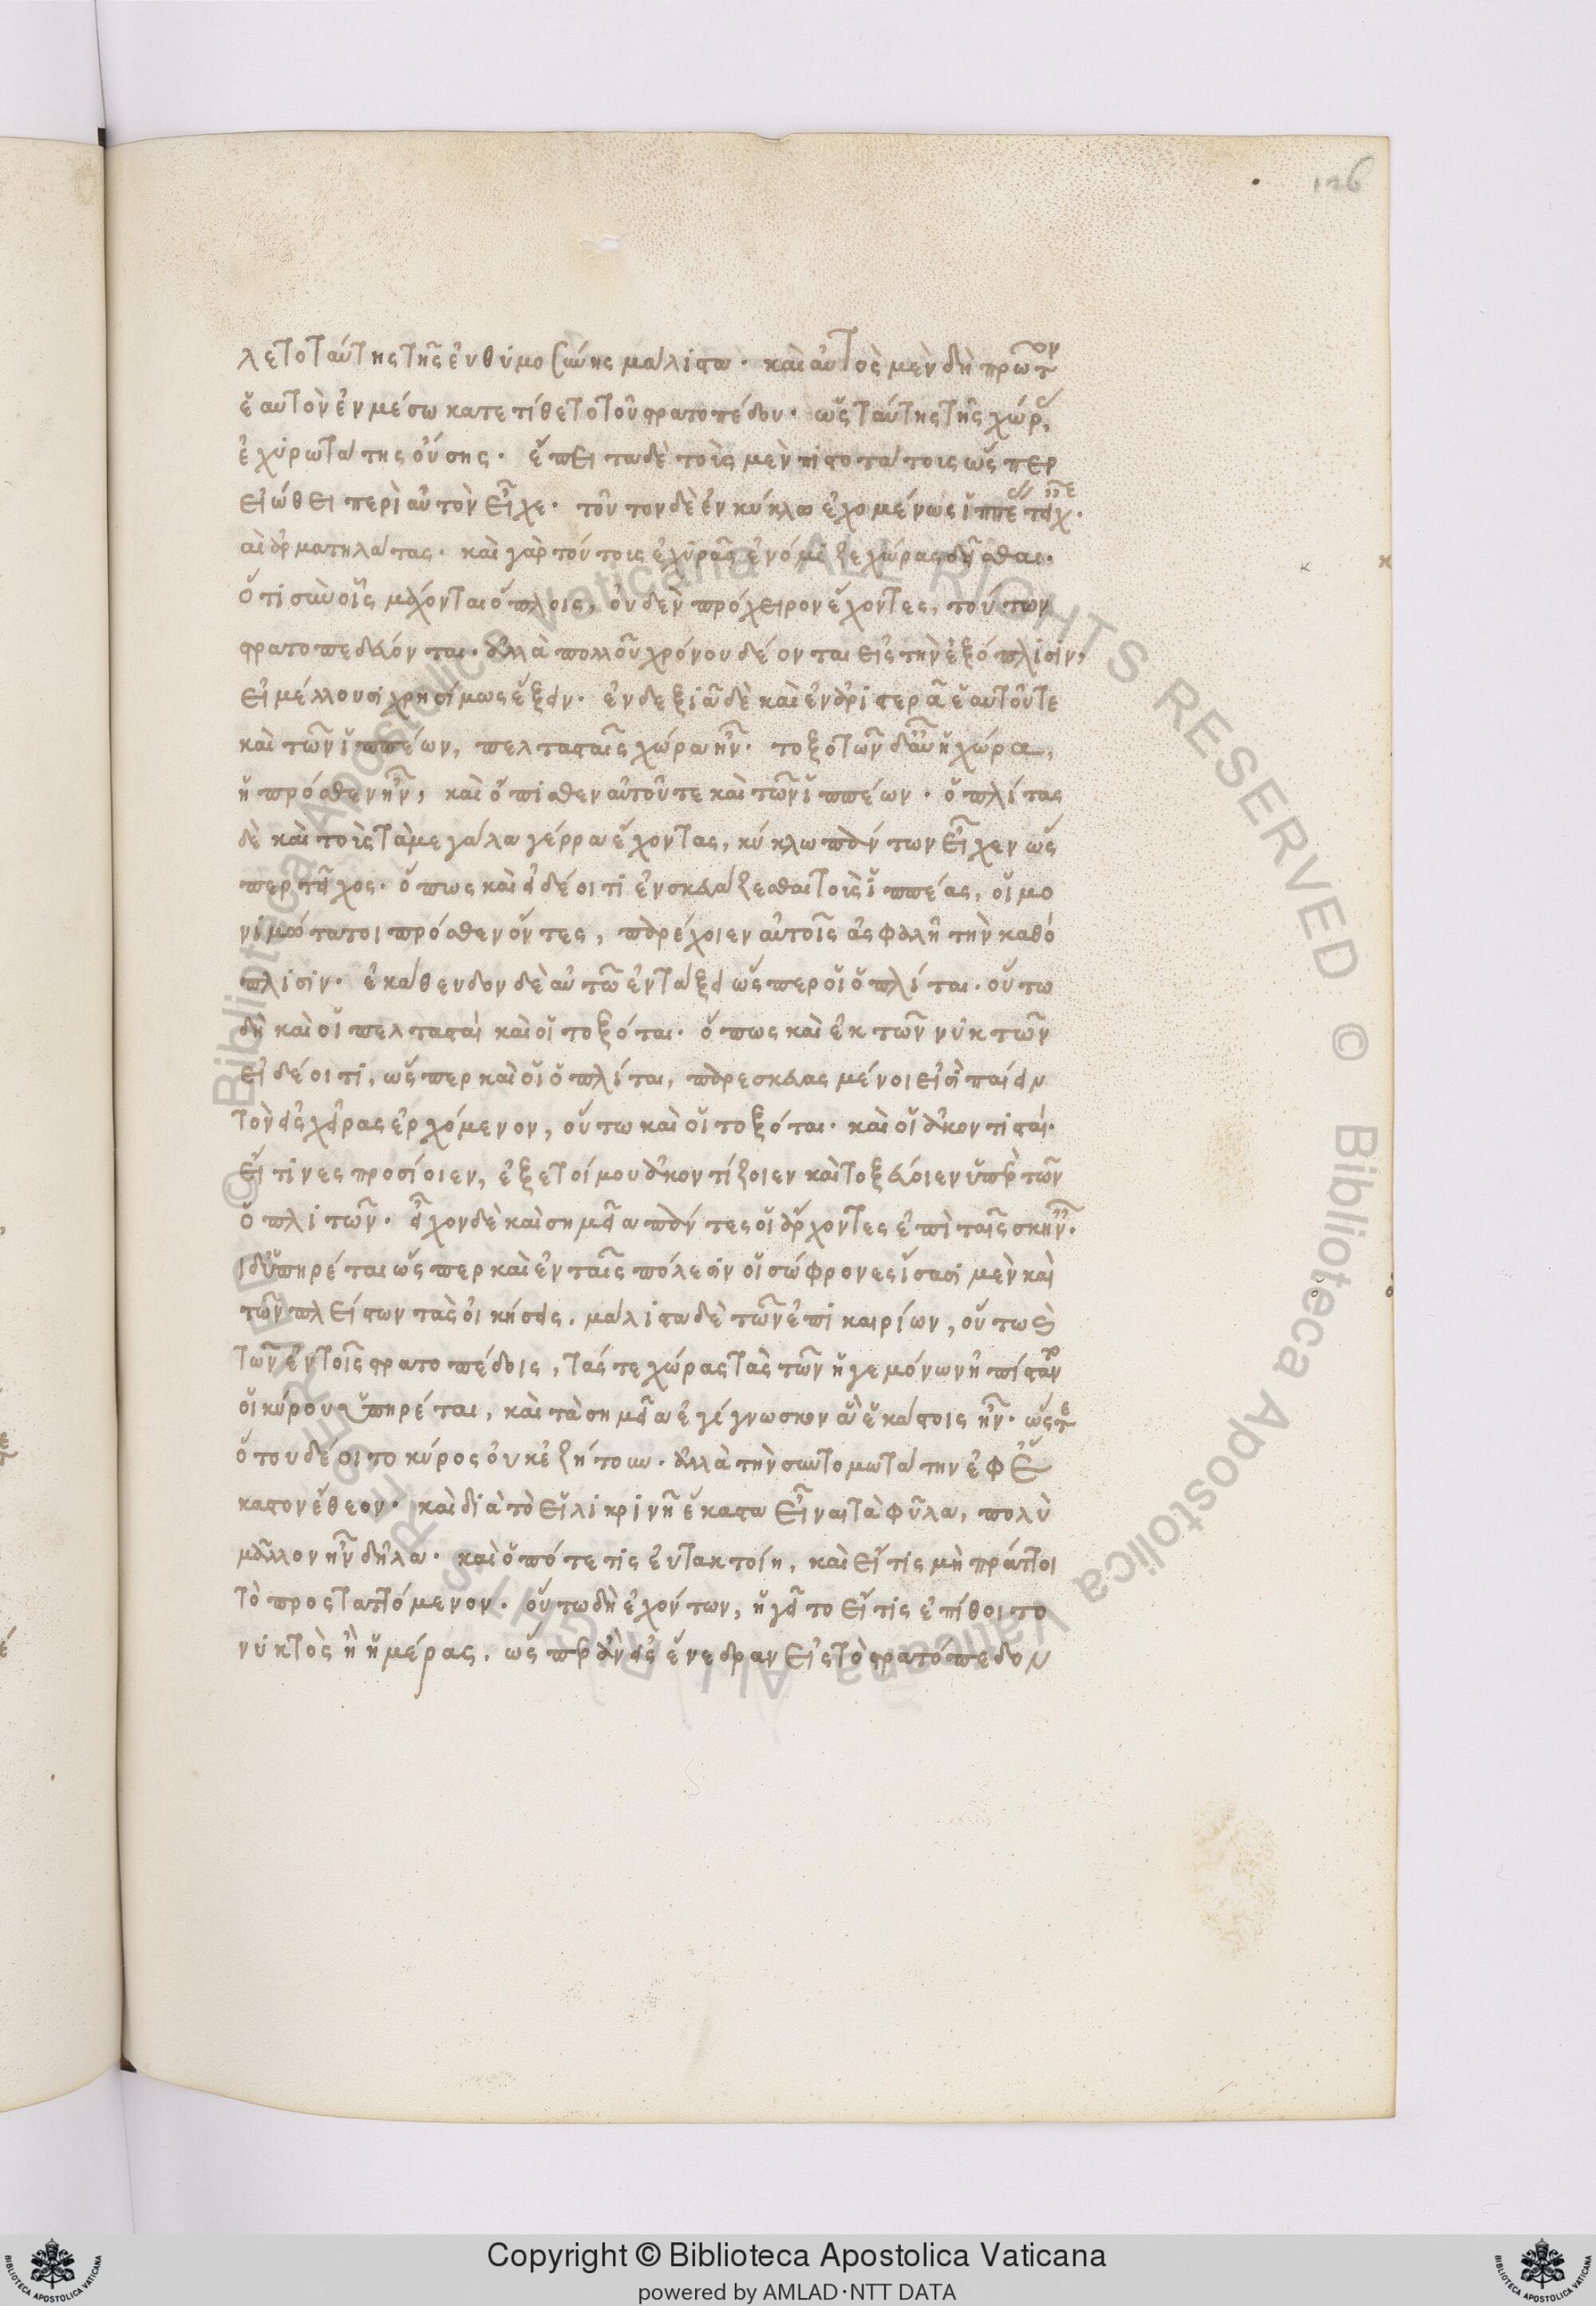 126
λετο ταύτης τῆς ἐυθυμοσύνης μάλιστα. καὶ αὐτὸς μὲν δὴ πρῶτον
ἑαυτὸν ἐν μέσω κατετίθετο τοῦ στρατοπέδου. ὡς ταύτης τῆς χώρας
ἐχυρωτάτης οὔσης. ἔπειτα δὲ τοὺς μὲν πιστοτάτους ὥσπερ
εἰώθει περὶ αὑτὸν εἶχε. τούτον δὲ ἐν κύκλω ἐχομένως ἱππέας τ' εἶχε.
καὶ ἁρματηλάτας. καὶ γὰρ τούτοις ἐχυρᾶς ἐνόμιζε χώρας δεῖσθαι.
ὅτι σὺν οἷς μάχονται ὅπλοις, οὐδὲν πρόχειρον ἔχοντες, τούτων
στρατοπεδεύονται. ἀλλὰ πολλοῦ χρόνου δέονται εἰς τὴν ἐξόπλισιν,
εἰ μέλλουσι χρησίμως ἕξειν. ἐν δεξιᾶ δὲ καὶ ἐν ἀριστερᾶ ἑαυτοῦ τε
καὶ τῶν ἱππέων, πελτασταῖς χώρα ἦν. τοξοτῶν δ' αὖ ἡ χώρα,
ἡ πρόσθεν ἦν, καὶ ὄπισθεν αὐτοῦ τε καὶ τῶν ἱππέων. ὁπλίτας
δὲ καὶ τοὺς τὰ μεγάλα γέρρα ἔχοντας, κύκλω πάντων εἶχεν ὥς
περ τεῖχος. ὅπως καὶ εἰ δέοι τι ἐνσκευάζεσθαι τοὺς ἱππέας, οἱ μο
νιμώτατοι πρόσθεν ὄντες, παρέχοιεν αὐτοῖς ἀσφαλῆ τὴν καθό
πλισιν. ἐκάθευδον δὲ αὐτῶ ἐν τάξει ὥσπερ οἱ ὁπλίται. οὕτω
δὴ καὶ οἱ πελτασταὶ καὶ οἱ τοξόται. ὅπως καὶ ἐκ τῶν νυκτῶν
εἰ δέοι τι, ὥσπερ καὶ οἱ ὁπλίται, παρεσκευασμένοι εἰσὶ παίειν
τὸν εἰς χεῖρας ἐρχόμενον, οὕτω καὶ οἱ τοξόται. καὶ οἱ ἀκοντισταί.
εἴ τινες προσίοιεν, ἐξ ετοίμου ἀκοντίζοιεν καὶ τοξεύοιεν ὑπὲρ τῶν
ὁπλιτῶν. εἶχον δὲ καὶ σημεῖα πάντες οἱ ἄρχοντες ἐπὶ ταῖς σκηναῖς.
οἱ δ' ὑπηρέται ὥσπερ καὶ ἐν ταῖς πόλεσιν οἱ σώφρονες ἴσασι μὲν καὶ
τῶν πλείστων τὰς οἰκήσεις. μάλιστα δὲ τῶν ἐπικαιρίων, οὕτω καὶ
τῶν ἐν τοῖς στρατοπέδοις, τάς τε χώρας τὰς τῶν ἡγεμόνων ἠπίσταντο
οἱ κύρου ὑπηρέται, καὶ τὰ σημεῖα ἐγίγνωσκον ἃ ἑκάστοις ἦν. ὥστε
ὅτου δέοιτο κύρος οὐκ ἐζήτουν. ἀλλὰ τὴν συντομωτάτην ἐφ' ἕ
καστον ἔθεον. καὶ διὰ τὸ εἱλικρινῆ ἕκαστα εἶναι τὰ φῦλα, πολὺ
μᾶλλον ἦν δῆλα. καὶ ὁπότε τις ἐυτακτοίη, καὶ εἴ τις μὴ πράττοι
τὸ προσταττόμενον. οὕτω δὴ ἐχόντων, ἡγεῖτο εἴ τις ἐπίθοιτο
νυκτὸς ἢ ἡμέρας, ὥσπερ ἂν εἰς ἐνέδραν εἰς τὸ στρατόπεδον
Copyright © Biblioteca Apostolica Vaticana
powered by AMLAD·NTT DATA